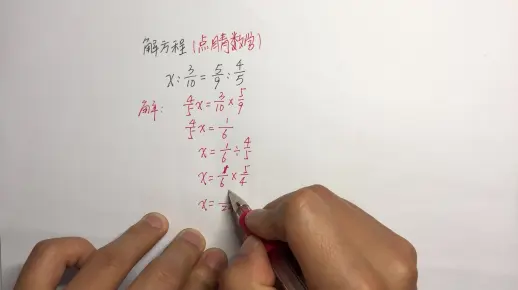 解方程(点睛数学)
x:3/10=5/9:4/5
解: 4/5x=3/10×5/9
4/5x=1/6
x=1/6÷4/5
x=1/6×5/4
x=